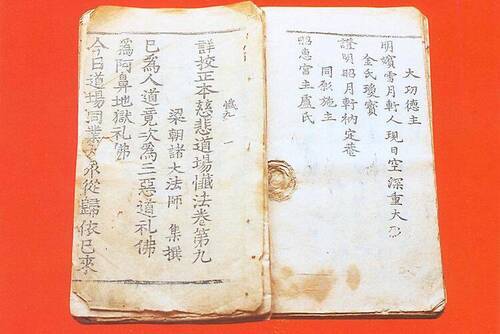 大功德主
明嬪雪月軒人現日空深重大
金氏瓊賓
證明昭月軒衲定菴
同 施主
昭惠宮主盧氏
懺九 一
詳校正本慈悲道場懺法卷第九
梁朝諸大法師 集撰
已爲人道竟次爲三惡道礼佛
爲阿鼻地獄礼佛
今日道場同業大衆從歸依已來